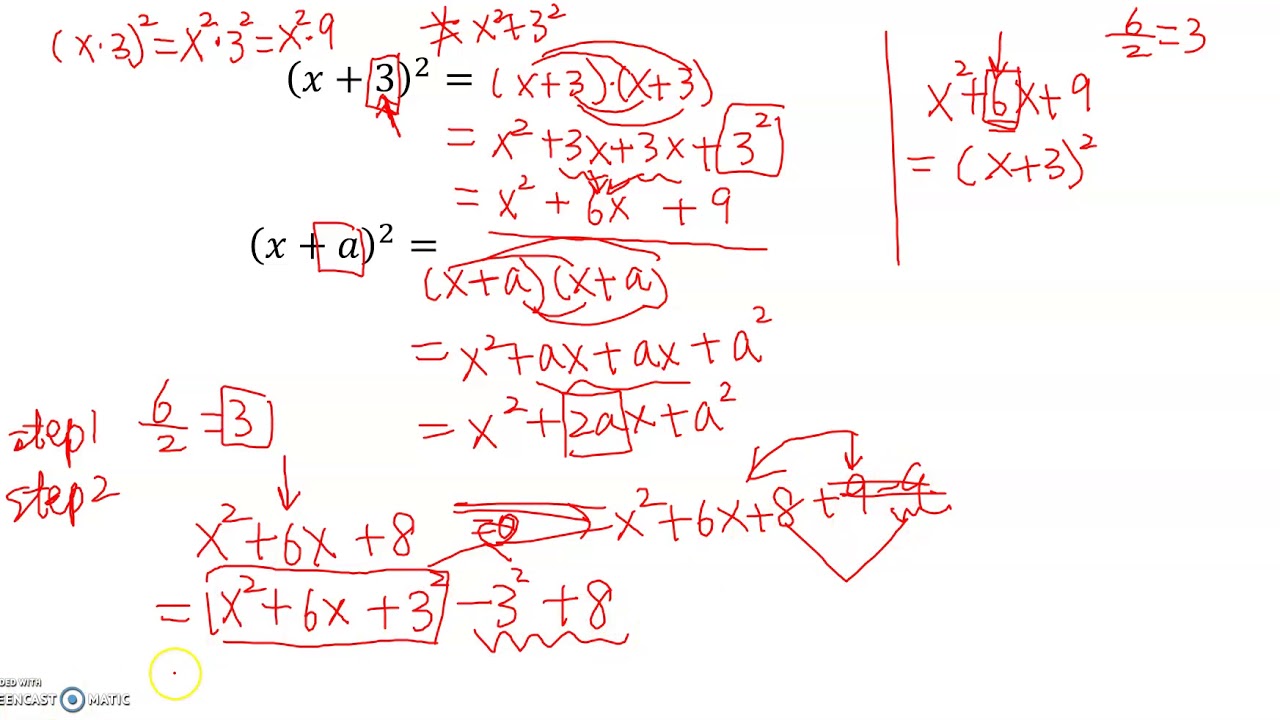 (x·3)² = x²·3² = x²·9
≠ x²+3²
(x + 3)² = (x+3)·(x+3)
= x² + 3x + 3x + 3²
= x² + 6x + 9
(x + a)² =
(x+a)(x+a)
= x² + ax + ax + a²
= x² + 2ax + a²
6/2 = 3
x² + 6x + 9
= (x+3)²
step1 6/2 = 3
step2
x² + 6x + 8 = x² + 6x + 8 + 9 - 9
= (x² + 6x + 3² - 3² + 8
DED WITH
EENCAST MATIC